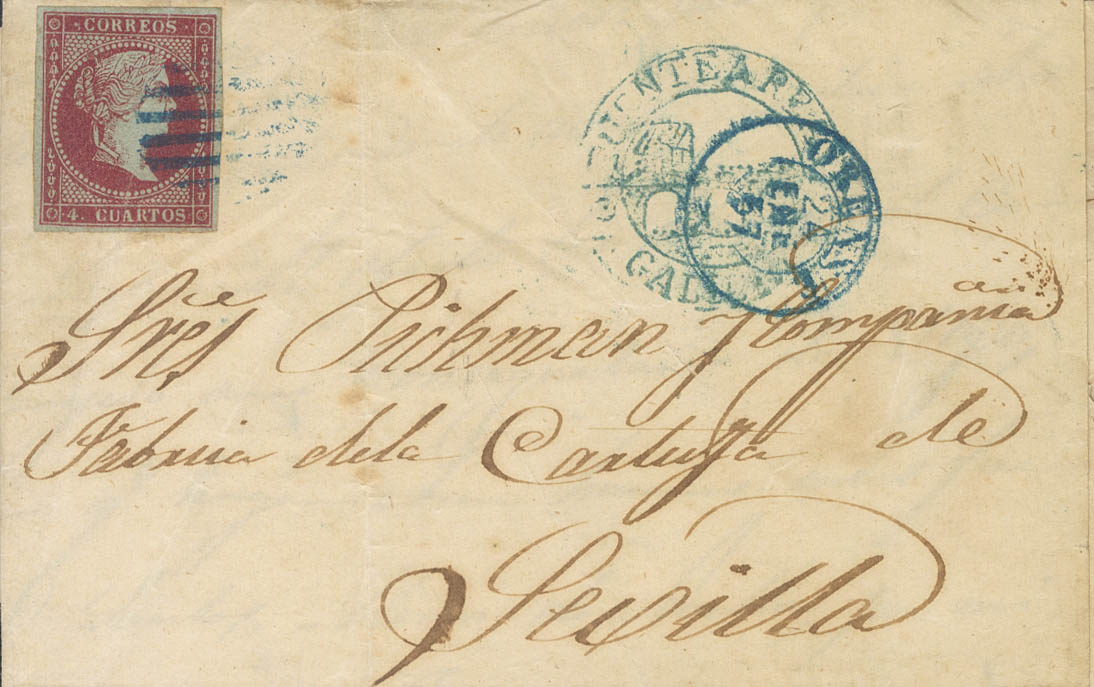 CORREOS
4. CUARTOS
PUENTEAR
GAL
ORENS
24
ENE
57
Sres Pickman y Compañia
Fabrica de la Cartuja de
Sevilla